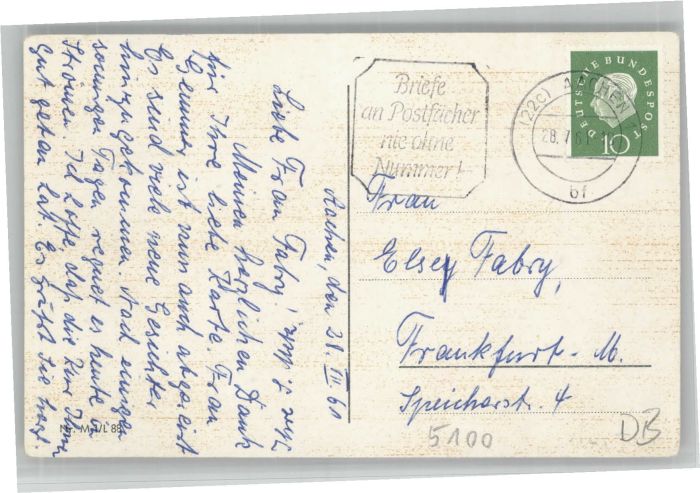 Aachen, den 28. VII. 61
Liebe Frau Fabry!
Meinen herzlichen Dank
für Ihre liebe Karte. Frau
ist nun auch abgereist
Es sind viele neue Gesichter
hinzugekommen. Nach einigen
sonnigen Tagen regnet es heute in
Strömen. Ich hoffe, daß die Kur Ihnen
gut getan hat. Es grüßt Sie herzl.
Briefe
an Postfächer
nie ohne
Nummer!
(22c) AACHEN
28.7.61
bf
DEUTSCHE BUNDESPOST
10
Frau
Elsey Fabry,
Frankfurt-M.
Speicherstr. 4
5100
DB
Nr. M I/L 88